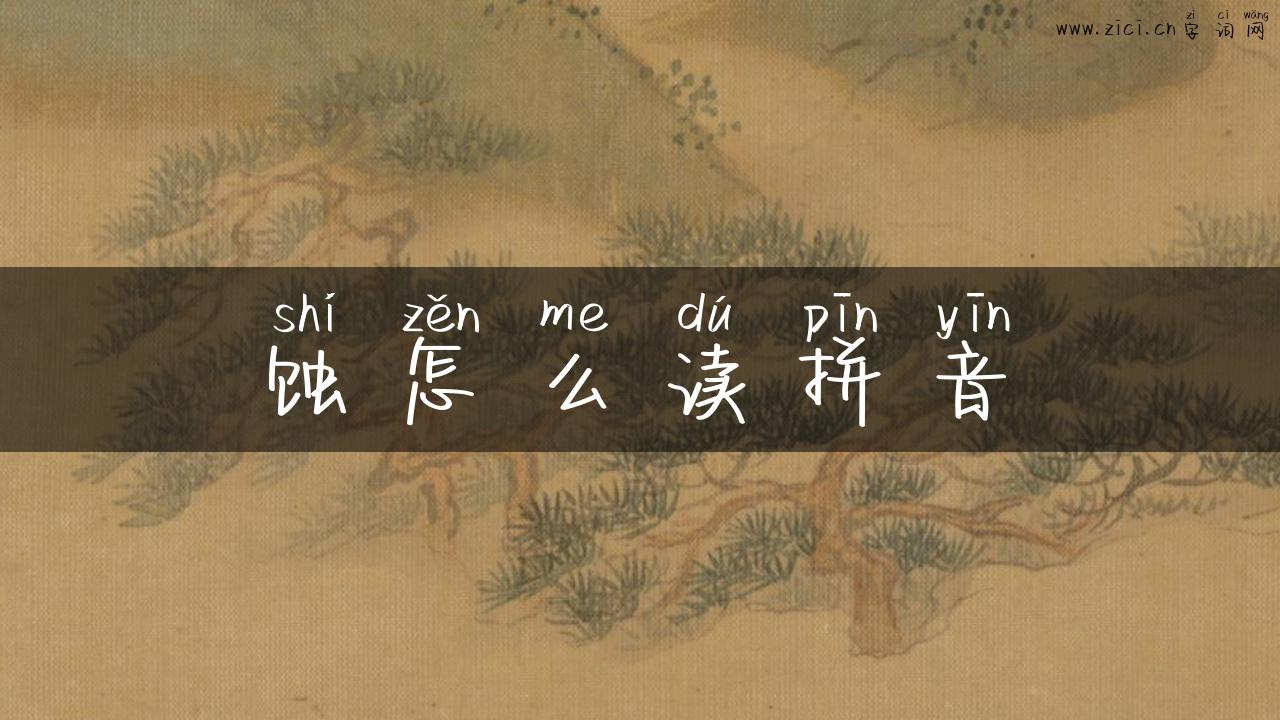 zì cí wǎng
www.zīcī.cn 字词网
shí zěn me dú pīn yīn
蚀怎么读拼音